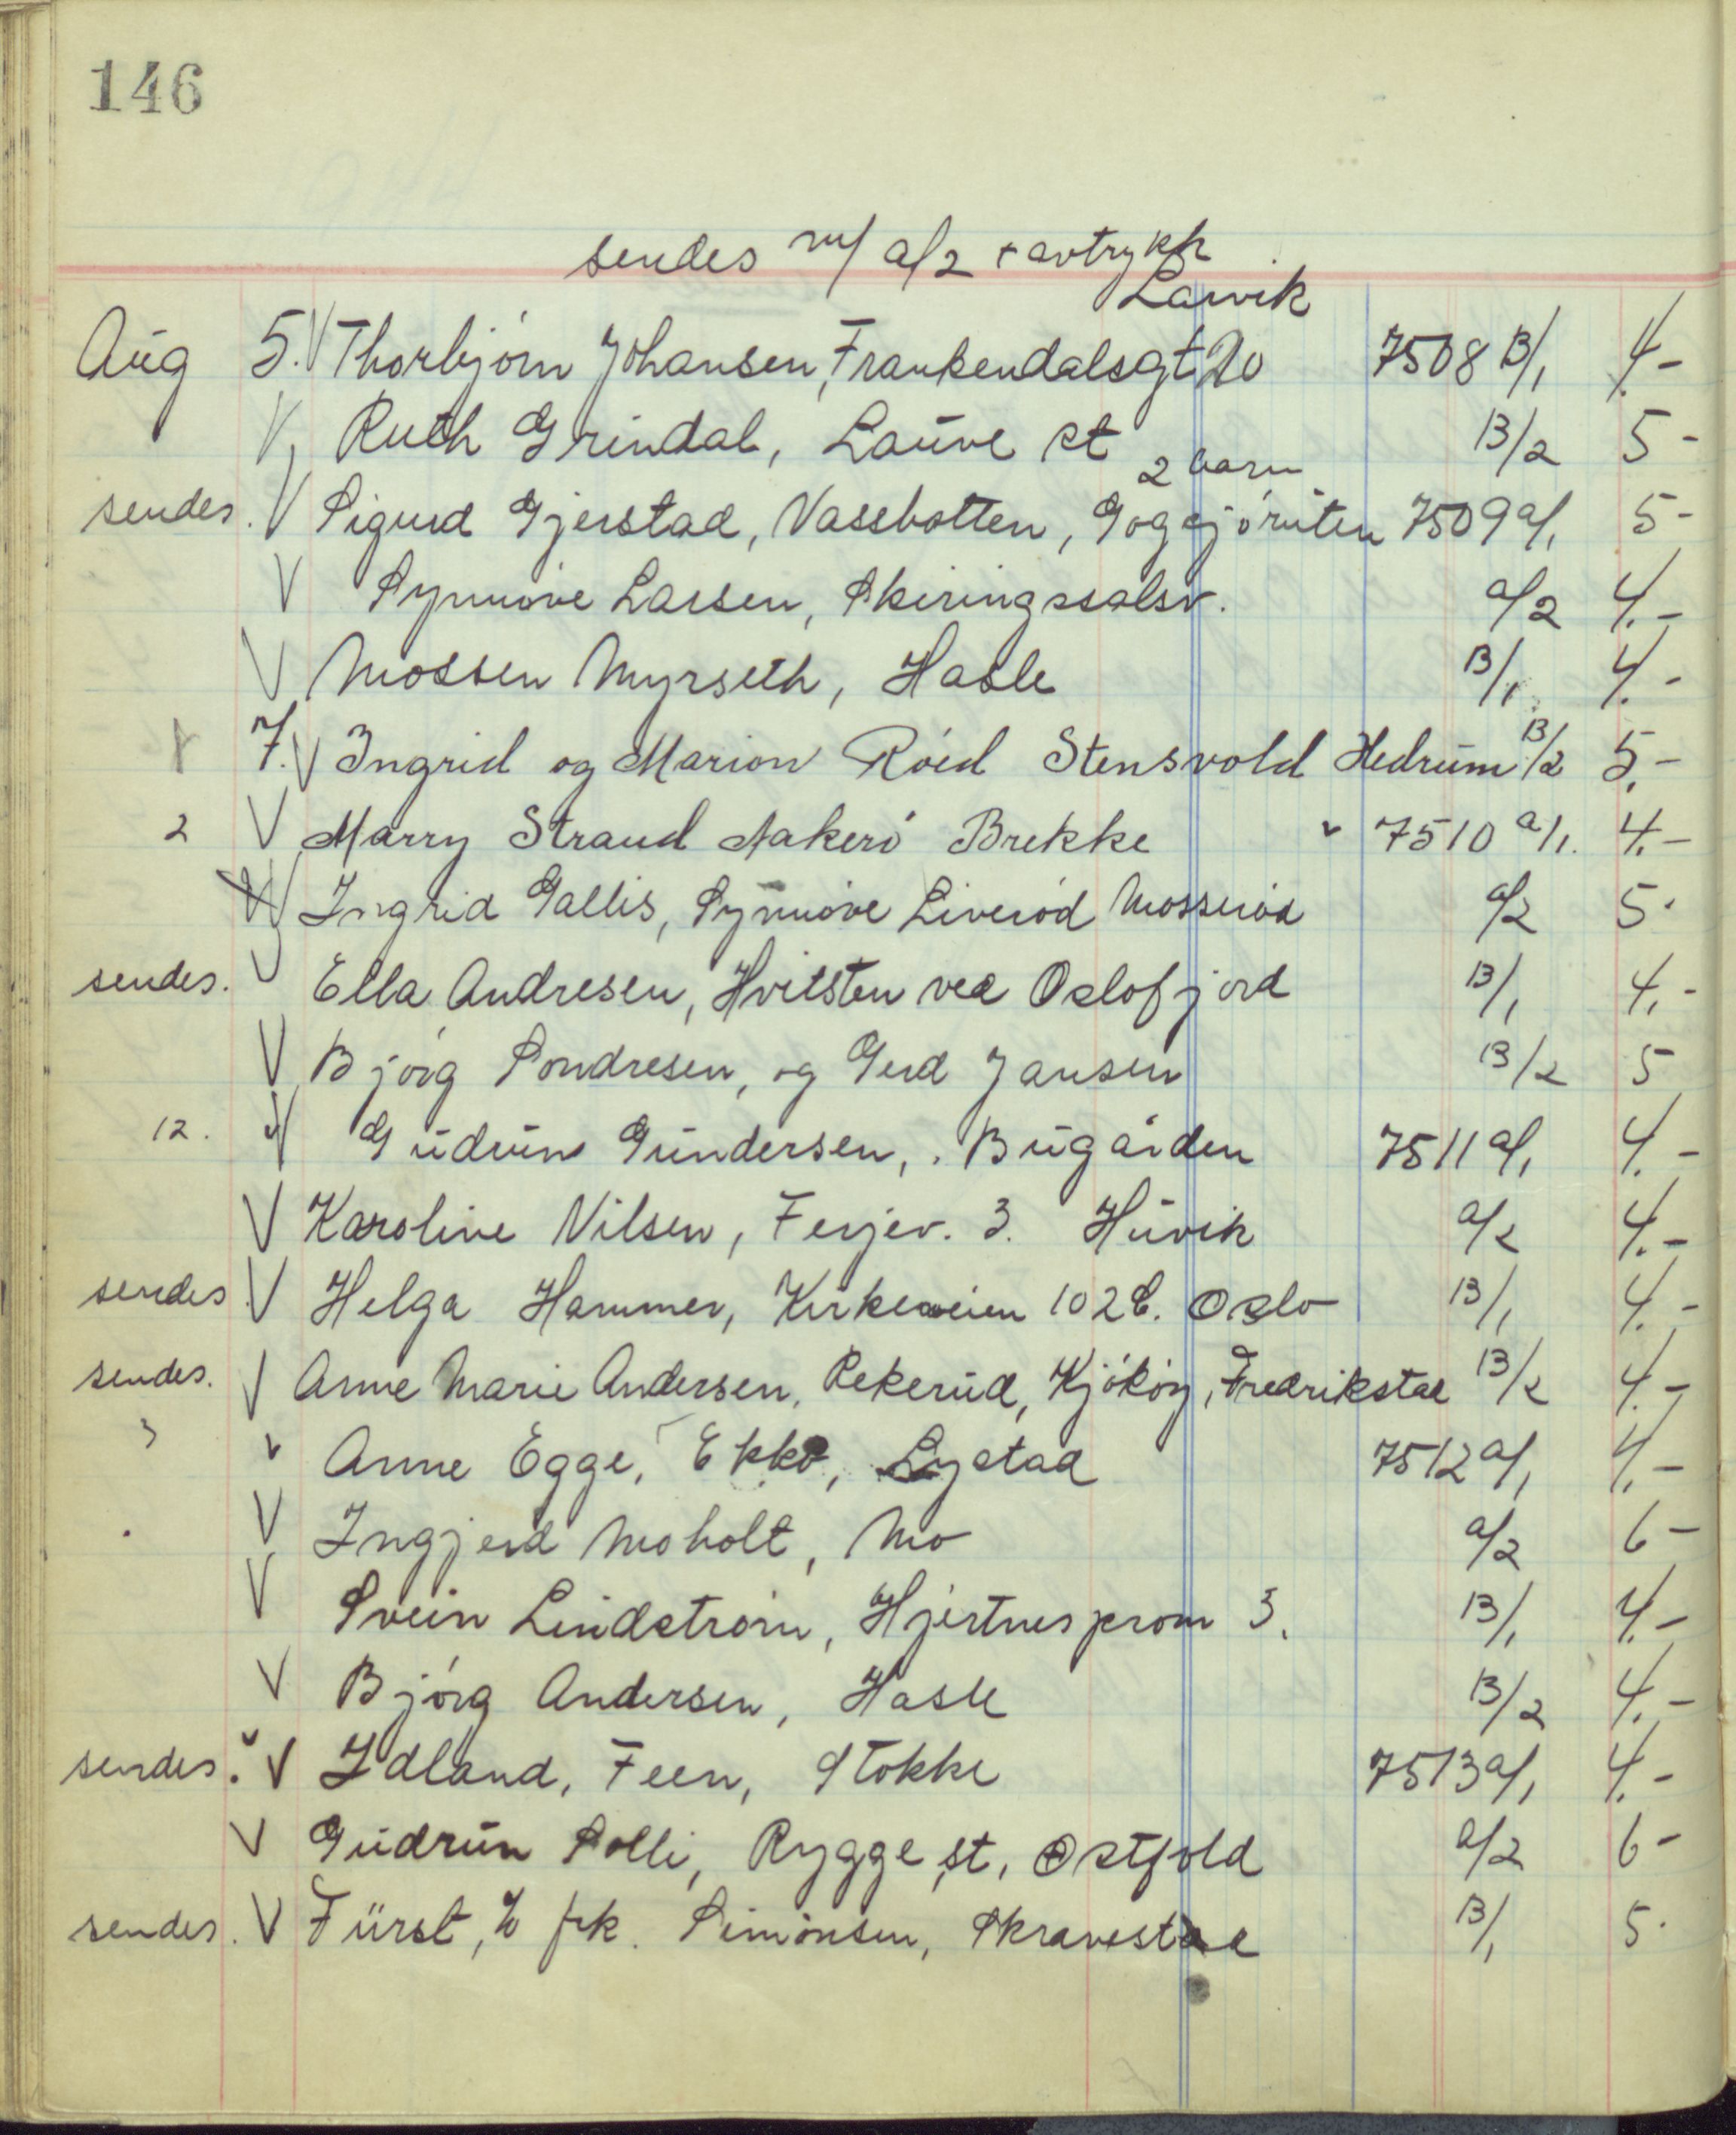 146
sendes m/ a/2 + avtrykk
Larvik
Aug 5. V Thorbjörn Johansen, Frankendalsgt 20 7508 B/1 4.-
V Ruth Grindal, Lauve st B/2 5-
2 barn
sendes. V Sigurd Gjerstad, Vassbotten, Gogsjöruten 7509 a/1 5-
V Synnöve Larsen, Skiringssalsv. a/2 4.-
V Mossen Myrseth, Hasle B/1 4.-
1 7. V Ingrid og Marion Röed Stensvold Hedrum B/2 5.-
2 V Marry Strand Aakerö Brekke v 7510 a/1. 4.-
V Ingrid Gallis, Synnöve Liveröd Mosseröd a/2 5.
sendes. V Ella Andresen, Hvitsten ved Oslofjord B/1 4.-
V Björg Sondresen, og Gerd Jansen B/2 5
12. V Gudrun Gundersen, . Bugården 7511 a/1 4.-
V Karoline Nilsen, Ferjev. 3. Huvik a/2 4.-
sendes. V Helga Hammer, Kirkeveien 102 C. Oslo B/1 4.-
sendes. V Anne Marie Andersen, Rekerud, Kjökøy, Fredrikstad B/2 4.-
3 v Anne Egge, Ekko, Lystad 7512 a/1 4.-
. V Ingjerd Moholt, Mo a/2 6-
V Svein Lindström, Hjertnesprom 3. B/1 4.-
V Björg Andersen, Hasle B/2 4.-
sendes. v V Idland, Feen, Stokke 7513 a/1 4.-
V Gudrun Solli, Rygge st, Østfold a/2 6-
sendes. V Fürst, % frk. Simonsen, Skravestad B/1 5.